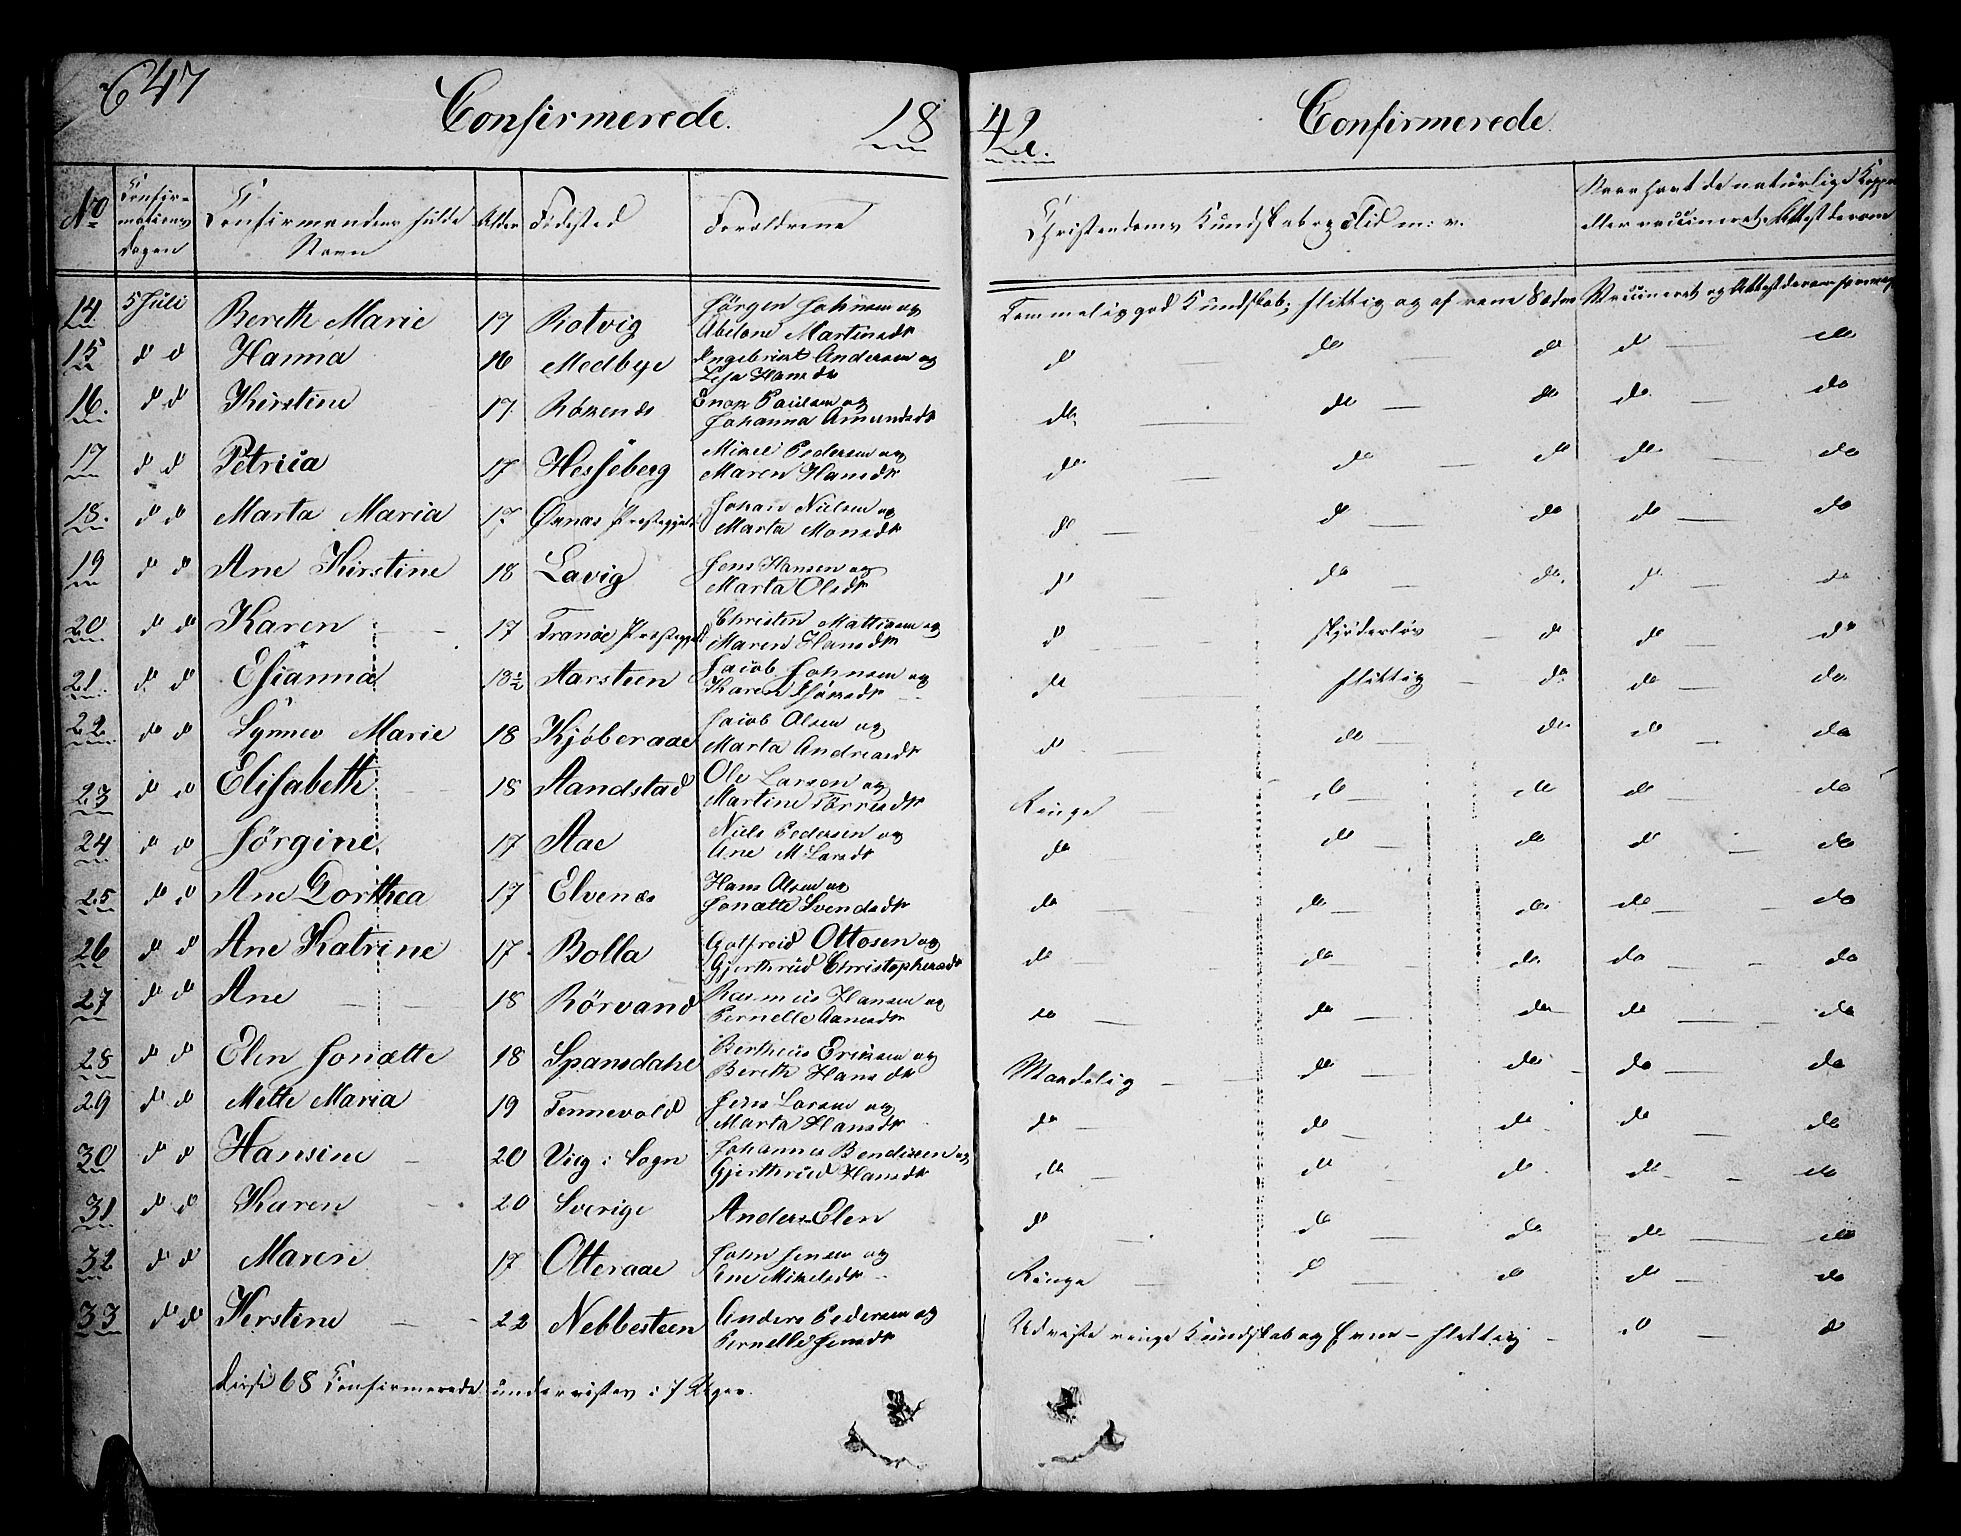 647
Confirmerede. 18 42. Confirmerede.
No Confirmations dagen Confirmandens fulde Navn Alder Fødested Forældrene Christendoms Kundskab og Flid m: v. Naar havt de naturlige Kopper eller vaccineret, Attest derom
14. 5 Juli Bereth Marie 17 Rotvig Jørgen Johnsen og Abelone Martinsdr Temmelig god Kundskab, flittig og af rene Sæder Vaccineret og Attest derom
15 do do Hanna 16 Medbye Ingebrigt Andersen og Hansdr do do do do — do
16. do do Kirstine 17. Røkenes Enok Paulsen og Johanna Amundsdr do. — do — do do — do
17 do do Petrica 17 Hesseberg Mikel Pedersen og Maren Hansdr do do — do do — do
18. do do Marta Maria 17 Præstegjeld Johan Nielsen og Marta Monsdr do — do — do do — do
19 do do Ane Kirstine 18 Lavig Jens Hansen og Marta Olsdr do — do — do. do — do
20 do do Karen — 17 Tranøe Præstegjeld Christen Mattisen og Maren Hansdr do — skjøderløs — do do — do
21. do do Esianna 18½ Aarsteen Jacob Johnsen og Karen do — flittig — do. do — do.
22. do do Synnev Marie 18 Kjøberaae Jacob Olsen og Marta Andreasdr do — do — do do — do
23 do do Elisabeth — 18 Aandstad Ole Larsen og Martine Torresdr Ringe — do — do do — do
24 do do Jørgine 17 Aae Niels Pedersen og Ane M Larsdr do do do do — do
25 do do Ane Dorthea 17 Elvenæs Hans Olsen og Jonette Svendsdr do — do — do do — do
26 do do Ane Katrine 17 Bolla Gotfreid Ottosen og Gjerthrud Christophersdr do — do — do do — do
27 do do Ane — 18 Rørvand Rasmus Hansen og Pernelle do — do do — do — do
28 do do Elen Jonette 18 Spansdahl Bertheus Eriksen og Bereth Hansdr Maadelig — do do — do — do
29 do do Mette Maria 19 Tennevold Jens Larsen og Marta Hansdr do — do — do do — do
30 do do Hansine — 20 Vig i Sogn Johannes Bendixen og Gjerthrud Hansdr do — do do do — do
31 do do Karen — 20 Sverige Anders Elen do — do — do do — do
32 do do Maren 17 Otteraae John Jensen og Ane Mikelsdr Ringe — do — do do — do
33 do do Kirstine — 22 Nebbesteen Anders Pedersen og Pernelle Jensdr Udviste ringe Kundskab og Evne — flittig — do — do
Disse 68 Confirmerede undervistes i 7 Uger.